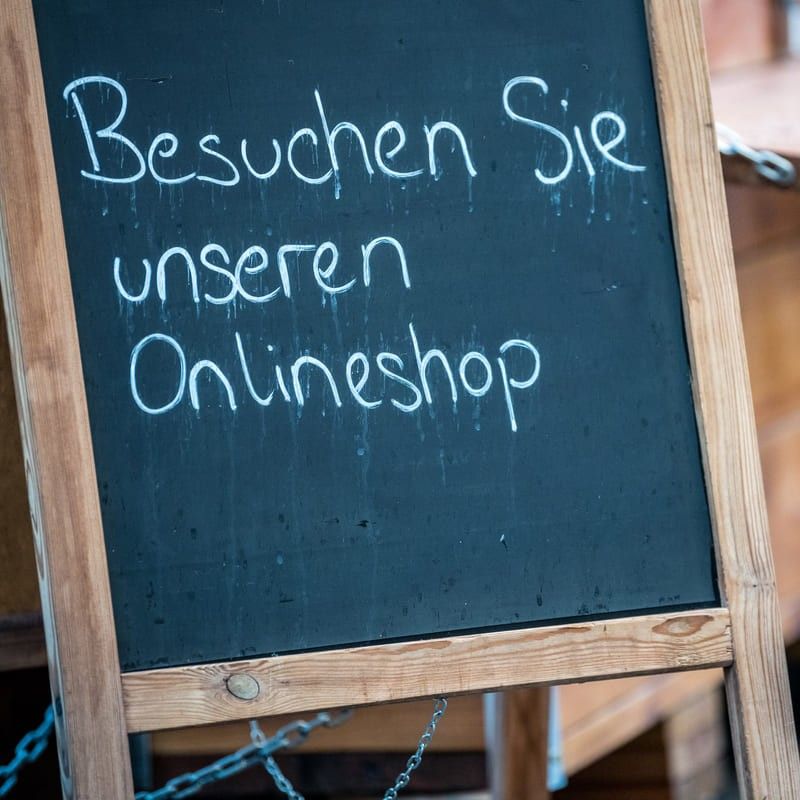 Besuchen Sie
unseren
Onlineshop